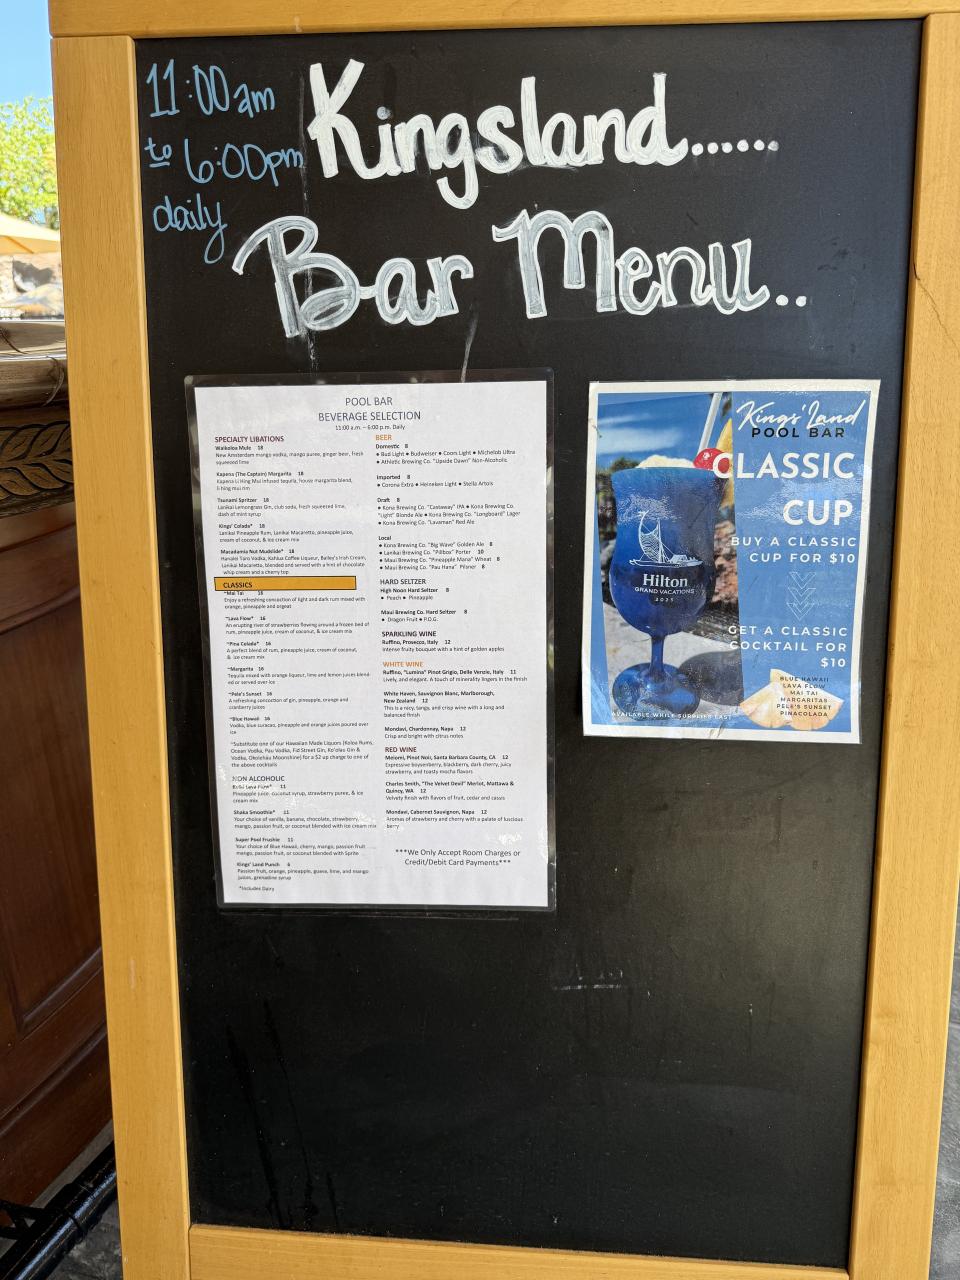 11:00am
to 6:00pm
daily
Kingsland......
Bar Menu..
POOL BAR
BEVERAGE SELECTION
11:00 a.m. – 6:00 p.m. Daily
SPECIALTY LIBATIONS
Waikoloa Mule 18
New Amsterdam mango vodka, mango puree, ginger beer, fresh
squeezed lime
Kapena (The Captain) Margarita 18
Kapena Li Hing Mui infused tequila, house margarita blend,
li hing mui rim
Tsunami Spritzer 18
Lanikai Lemongrass Gin, club soda, fresh squeezed lime,
dash of mint syrup
Kings' Colada* 18
Lanikai Pineapple Rum, Lanikai Macaretto, pineapple juice,
cream of coconut, & ice cream mix
Macadamia Nut Mudslide* 18
Hanalei Taro Vodka, Kahlua Coffee Liqueur, Bailey's Irish Cream,
Lanikai Macaretto, blended and served with a hint of chocolate
whip cream and a cherry top
CLASSICS
~Mai Tai 16
Enjoy a refreshing concoction of light and dark rum mixed with
orange, pineapple and orgeat
~Lava Flow* 16
An erupting river of strawberries flowing around a frozen bed of
rum, pineapple juice, cream of coconut, & ice cream mix
~Pina Colada* 16
A perfect blend of rum, pineapple juice, cream of coconut,
& ice cream mix
~Margarita 16
Tequila mixed with orange liqueur, lime and lemon juices blend-
ed or served over ice
~Pele's Sunset 16
A refreshing concoction of gin, pineapple, orange and
cranberry juices
~Blue Hawaii 16
Vodka, blue curacao, pineapple and orange juices poured over
ice
~Substitute one of our Hawaiian Made Liquors (Koloa Rums,
Ocean Vodka, Pau Vodka, Fid Street Gin, Ko'olau Gin &
Vodka, Okolehau Moonshine) for a $2 up charge to one of
the above cocktails
NON ALCOHOLIC
Lava Flow* 11
Pineapple juice, coconut syrup, strawberry puree, & ice
cream mix
Shaka Smoothie* 11
Your choice of vanilla, banana, chocolate, strawberry,
mango, passion fruit, or coconut blended with ice cream mix
Super Pool Frushie 11
Your choice of Blue Hawaii, cherry, mango, passion fruit
mango, passion fruit, or coconut blended with Sprite
Kings' Land Punch 6
Passion fruit, orange, pineapple, guava, lime, and mango
juices, grenadine syrup
*Includes Dairy
BEER
Domestic 8
● Bud Light ● Budweiser ● Coors Light ● Michelob Ultra
● Athletic Brewing Co. "Upside Dawn" Non-Alcoholic
Imported 8
● Corona Extra ● Heineken Light ● Stella Artois
Draft 8
● Kona Brewing Co. "Castaway" IPA ● Kona Brewing Co.
"Light" Blonde Ale ● Kona Brewing Co. "Longboard" Lager
● Kona Brewing Co. "Lavaman" Red Ale
Local
● Kona Brewing Co. "Big Wave" Golden Ale 8
● Lanikai Brewing Co. "Pillbox" Porter 10
● Maui Brewing Co. "Pineapple Mana" Wheat 8
● Maui Brewing Co. "Pau Hana" Pilsner 8
HARD SELTZER
High Noon Hard Seltzer 8
● Peach ● Pineapple
Maui Brewing Co. Hard Seltzer 8
● Dragon Fruit ● P.O.G.
SPARKLING WINE
Ruffino, Prosecco, Italy 12
Intense fruity bouquet with a hint of golden apples
WHITE WINE
Ruffino, "Lumina" Pinot Grigio, Delle Venzie, Italy 11
Lively, and elegant. A touch of minerality lingers in the finish
White Haven, Sauvignon Blanc, Marlborough,
New Zealand 12
This is a racy, tangy, and crisp wine with a long and
balanced finish
Mondavi, Chardonnay, Napa 12
Crisp and bright with citrus notes
RED WINE
Meiomi, Pinot Noir, Santa Barbara County, CA 12
Expressive boysenberry, blackberry, dark cherry, juicy
strawberry, and toasty mocha flavors
Charles Smith, "The Velvet Devil" Merlot, Mattawa &
Quincy, WA 12
Velvety finish with flavors of fruit, cedar and cassis
Mondavi, Cabernet Sauvignon, Napa 12
Aromas of strawberry and cherry with a palate of luscious
berry
***We Only Accept Room Charges or
Credit/Debit Card Payments***
Kings' Land
POOL BAR
CLASSIC
CUP
BUY A CLASSIC
CUP FOR $10
GET A CLASSIC
COCKTAIL FOR
$10
BLUE HAWAII
LAVA FLOW
MAI TAI
MARGARITAS
PELE'S SUNSET
PINACOLADA
Hilton
GRAND VACATIONS
2023
AVAILABLE WHILE SUPPLIES LAST